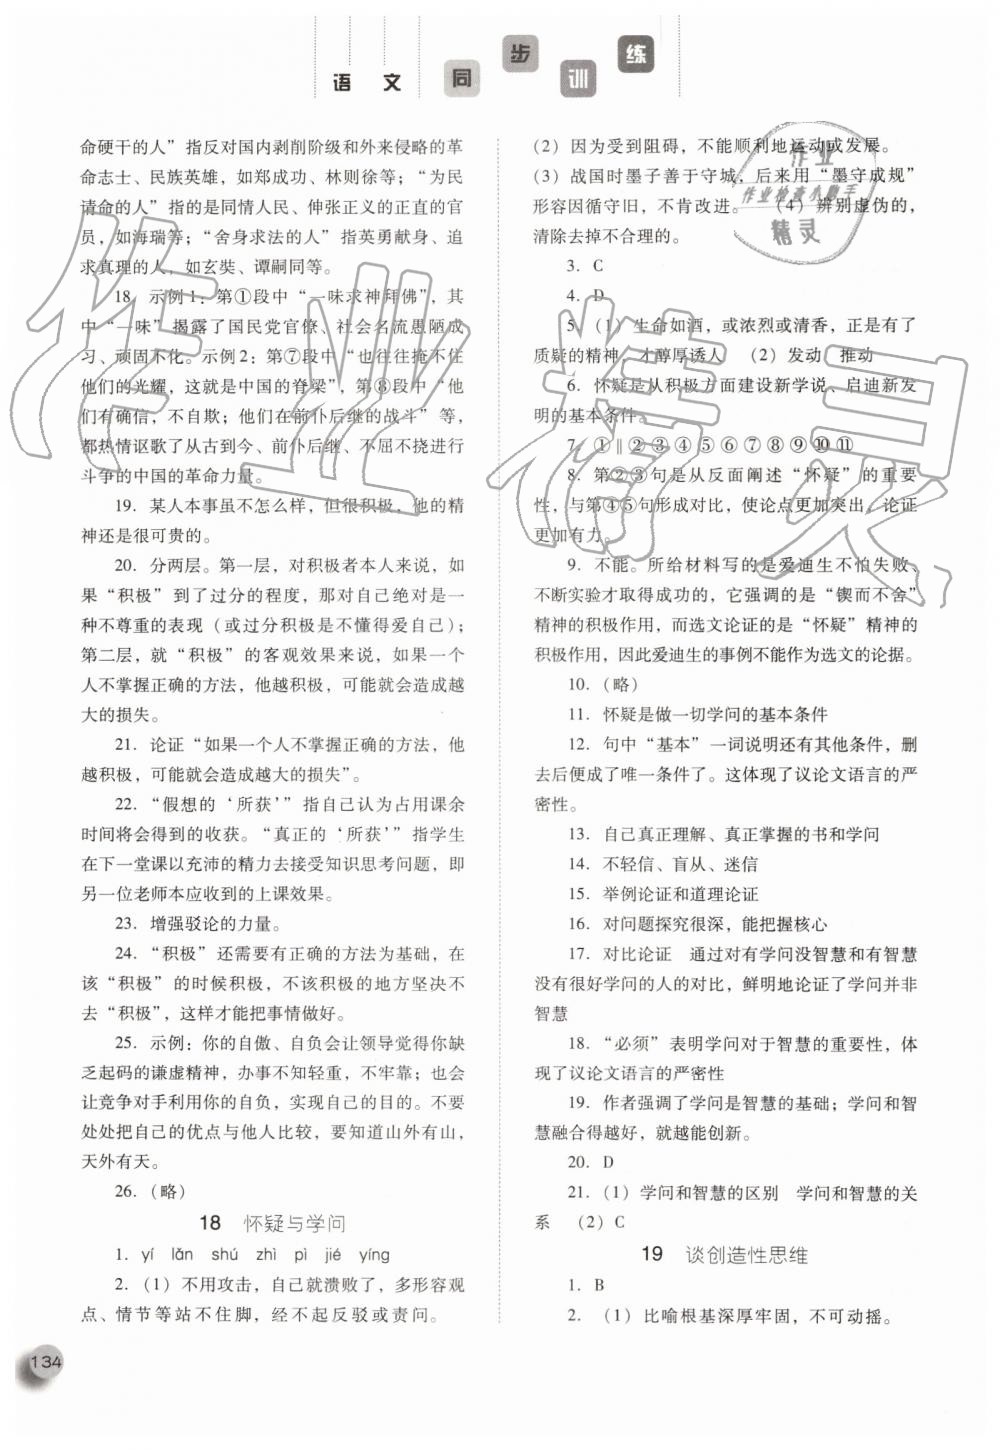 语文同步训练
命硬干的人”指反对国内剥削阶级和外来侵略的革
命志士、民族英雄，如郑成功、林则徐等；“为民
请命的人”指的是同情人民、伸张正义的正直的官
员，如海瑞等；“舍身求法的人”指英勇献身、追
求真理的人，如玄奘、谭嗣同等。
18．示例1：第①段中“一味求神拜佛”，其
中“一味”揭露了国民党官僚、社会名流愚陋成
习、顽固不化。示例2：第⑦段中“也往往掩不住
他们的光耀，这就是中国的脊梁”，第⑧段中“他
们有确信，不自欺；他们在前仆后继的战斗”等，
都热情讴歌了从古到今、前仆后继、不屈不挠进行
斗争的中国的革命力量。
19．某人本事虽不怎么样，但很积极，他的精
神还是很可贵的。
20．分两层。第一层，对积极者本人来说，如
果“积极”到了过分的程度，那对自己绝对是一
种不尊重的表现（或过分积极是不懂得爱自己）；
第二层，就“积极”的客观效果来说，如果一个
人不掌握正确的方法，他越积极，可能就会造成越
大的损失。
21．论证“如果一个人不掌握正确的方法，他
越积极，可能就会造成越大的损失”。
22．“假想的‘所获’”指自己认为占用课余
时间将会得到的收获。“真正的‘所获’”指学生
在下一堂课以充沛的精力去接受知识思考问题，即
另一位老师本应收到的上课效果。
23．增强驳论的力量。
24．“积极”还需要有正确的方法为基础，在
该“积极”的时候积极，不该积极的地方坚决不
去“积极”，这样才能把事情做好。
25．示例：你的自傲、自负会让领导觉得你缺
乏起码的谦虚精神，办事不知轻重，不牢靠；也会
让竞争对手利用你的自负，实现自己的目的。不要
处处把自己的优点与他人比较，要知道山外有山，
天外有天。
26．（略）
18 怀疑与学问
1．yí lǎn shú zhì pì jié yíng
2．（1）不用攻击，自己就溃败了，多形容观
点、情节等站不住脚，经不起反驳或责问。
（2）因为受到阻碍，不能顺利地运动或发展。
（3）战国时墨子善于守城，后来用“墨守成规”
形容因循守旧，不肯改进。 （4）辨别虚伪的，
清除去掉不合理的。
3．C
4．D
5．（1）生命如酒，或浓烈或清香，正是有了
质疑的精神，才醇厚诱人 （2）发动 推动
6．怀疑是从积极方面建设新学说、启迪新发
明的基本条件。
7．①‖②③④⑤⑥⑦⑧⑨⑩⑪
8．第②③句是从反面阐述“怀疑”的重要
性，与第④⑤句形成对比，使论点更加突出，论证
更加有力。
9．不能。所给材料写的是爱迪生不怕失败、
不断实验才取得成功的，它强调的是“锲而不舍”
精神的积极作用，而选文论证的是“怀疑”精神的
积极作用，因此爱迪生的事例不能作为选文的论据。
10．（略）
11．怀疑是做一切学问的基本条件
12．句中“基本”一词说明还有其他条件，删
去后便成了唯一条件了。这体现了议论文语言的严
密性。
13．自己真正理解、真正掌握的书和学问
14．不轻信、盲从、迷信
15．举例论证和道理论证
16．对问题探究很深，能把握核心
17．对比论证 通过对有学问没智慧和有智慧
没有很好学问的人的对比，鲜明地论证了学问并非
智慧
18．“必须”表明学问对于智慧的重要性，体
现了议论文语言的严密性
19．作者强调了学问是智慧的基础；学问和智
慧融合得越好，就越能创新。
20．D
21．（1）学问和智慧的区别 学问和智慧的关
系 （2）C
19 谈创造性思维
1．B
2．（1）比喻根基深厚牢固，不可动摇。
134
作业
作业检查小助手
精灵
作业精灵